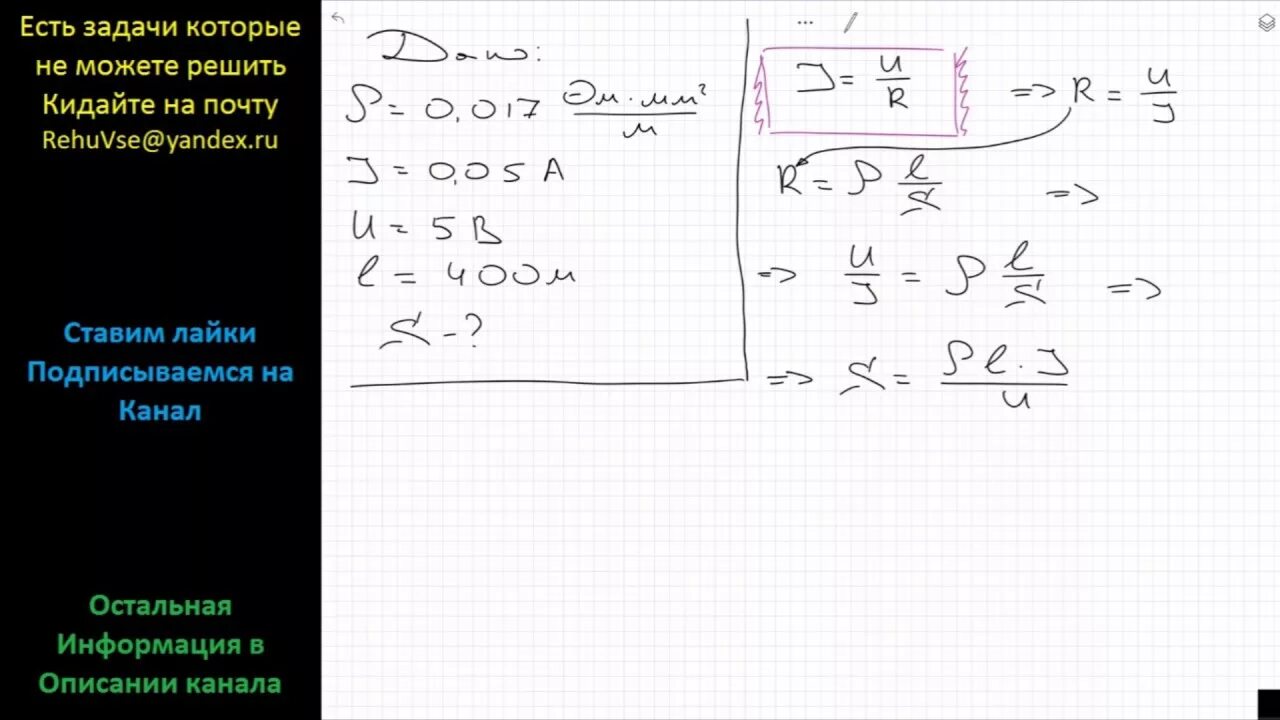 Есть задачи которые
не можете решить
Кидайте на почту
RehuVse@yandex.ru
Ставим лайки
Подписываемся на
Канал
Остальная
Информация в
Описании канала
Дано:
ρ = 0,017 Ом·мм²/м
I = 0,05 А
U = 5 В
l = 400 м
S - ?
I = U/R => R = U/I
R = ρ l/S =>
=> U/I = ρ l/S =>
=> S = ρ l · I/U